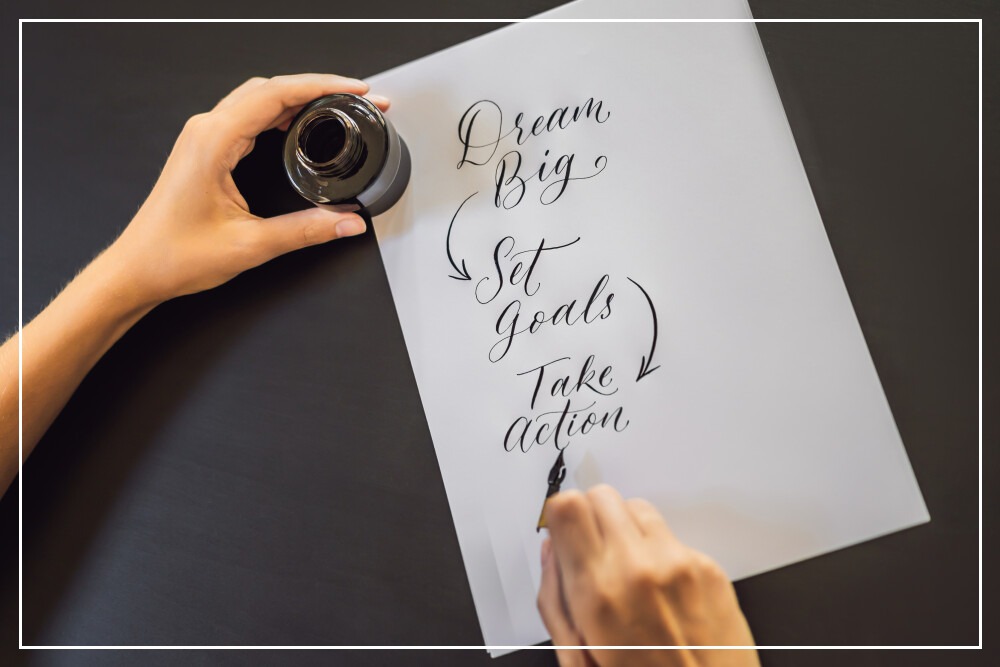 Dream
Big
Set
Goals
Take
Action